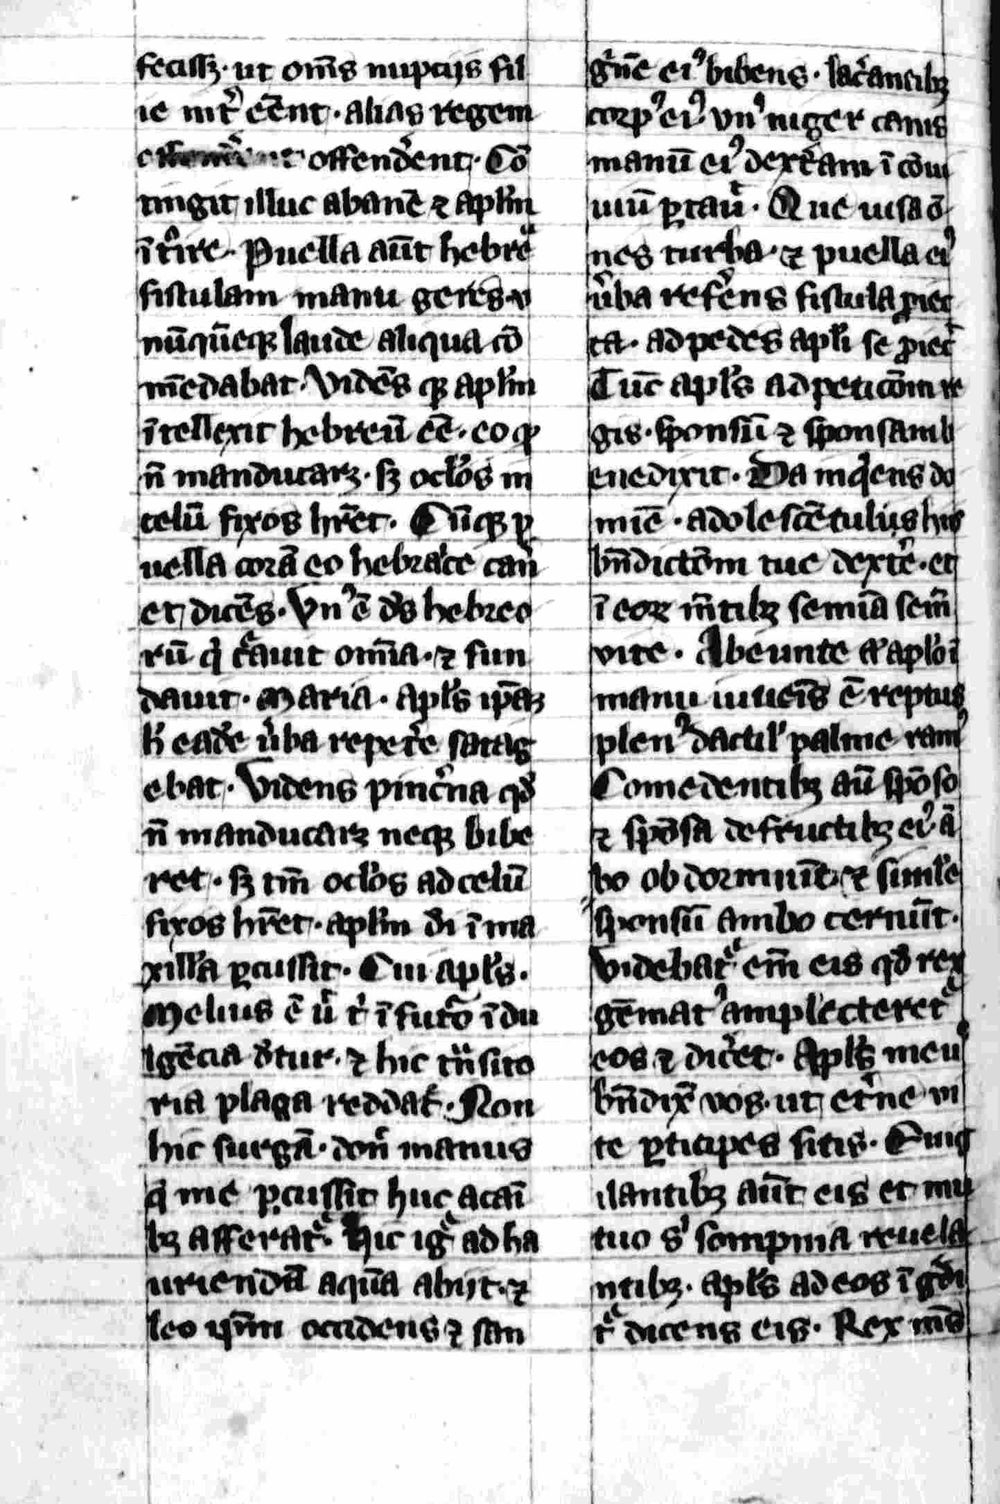 fecissꝫ · ut om̄s nupcijs fil
ie int̓ eēnt · alias regem
offend̓ent · Cō
tingit illuc abanē ⁊ apl̓m
īt̓ire · Puella aūt hebrea
fistulam manu gerēs · v
nūquēqꝫ laude aliqua cō
mēdabat · Vidēs qꝫ apl̓m
ītellexit hebreū eē · eo ꝙ
n̄ manducarꝫ · sꝫ ocl̓os in
celū fixos hr̄et · Cūqꝫ p
uella corā eo hebraice can̓
et dicēs · Vn᾽ ē ds̄ hebreo
rū q̓ c̓avit om̄ia · ⁊ fun
davit · maria · apl̓s ip̄aꝫ
h̓ eadē v̓ba repet̓e satag
ebat · Videns pinc̓na qd̓
n̄ manducarꝫ neqꝫ bibe
ret · sꝫ tm̄ ocl̓os ad celū
fixos hr̄et · apl̓m di̓ ī ma
xilla ꝑcussit · Cui apl̓s ·
Melius ē ut t̓ ī futo̓ īdu
lgēcia detur · ⁊ hic tn̄sito
ria plaga reddat᷑ · Non
hic surgā · don̓ manus
q̄ me ꝑcussit huc a canī
bꝫ afferat᷑ · Hic ig᷑ ad ha
uriendā aquā abijt · ⁊
leo ip̄m occidens ⁊ san
g̓nē ei᾽ bibens · lac̓antibꝫ
corp᾽ ei᾽ un᾽ niger canis
manū ei᾽ dext̓am ī cōui
uiū ꝑtav̓ · Que uisa ō
nes turba · ⁊ puella ei᾽
v̓ba ref̓ens fistula ꝓiec
ta · ad pedes apl̓i se ꝓiec̓
Tūc apl̓s ad peticōm re
gis · sponsū ⁊ sponsam b
enedixit · Da inq̓ens do
mīe · adolescētulijs his
bn̄dictōm tue dext̓e · et
ī eoꝝ mētibꝫ semīa sem̄
vite · Abeunte a᷑ apl̓o ī
manu iuuēis ē reptus
plen᾽ dactil᾽ palme ram᾽
Comedentibꝫ aū spōso
⁊ spōsa de fructibꝫ ei᾽ ā
bo obdormiūt · ⁊ simile
sponsū ambo cernūt ·
Videbat᷑ em̄ eis qd̓ rex
gēmat᾽ amplecteret᷑
eos ⁊ dic̓et · Apl̓s meu᾽
bn̄dix̄ vos · ut et̓ne vi
te ꝑticipes sitis · Euig
ilantibꝫ aūt eis et mu
tuo s᾽ sompnia reuela
ntibꝫ · apl̓s ad eos īgdi
t᷑ dicens eis · Rex m̄s